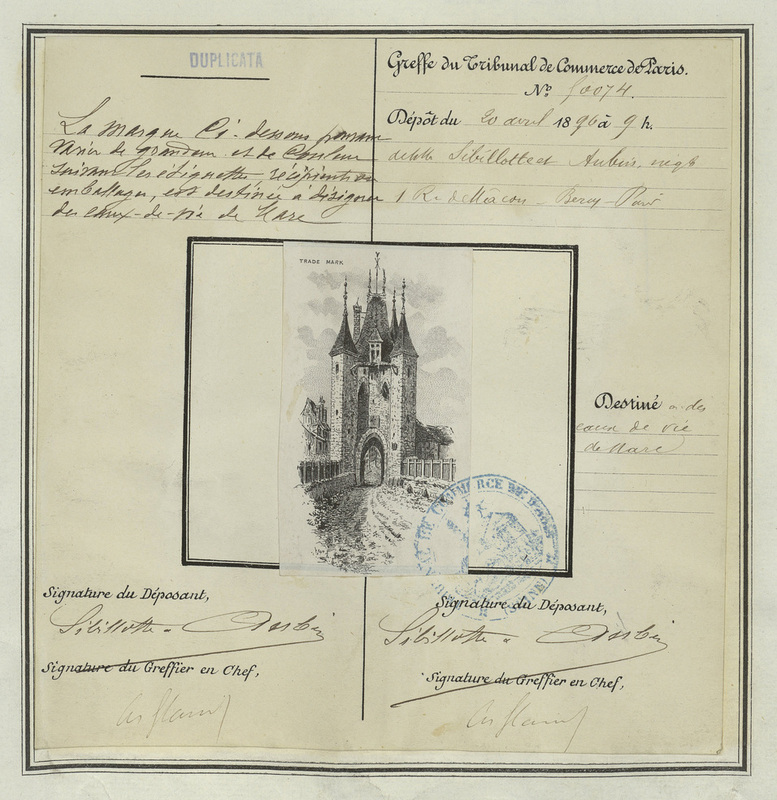 DUPLICATA
La marque ci-dessous pouvant
varier de grandeur et de couleur
suivant les étiquettes, récipients ou
emballages, est destinée à désigner
des eaux-de-vie de Marc
Greffe du Tribunal de Commerce de Paris.
No 50074.
Dépôt du 20 avril 1896 à 9 h.
Sibillotte et Aubin, negts
1 R. de Mâcon - Bercy - Paris
TRADE MARK
Destiné a des
eaux de vie
de Marc
TRIBUNAL DE COMMERCE DE
Signature du Déposant,
Sibillotte Aubin
Signature du Greffier en Chef,
Signature du Déposant,
Sibillotte Aubin
Signature du Greffier en Chef,